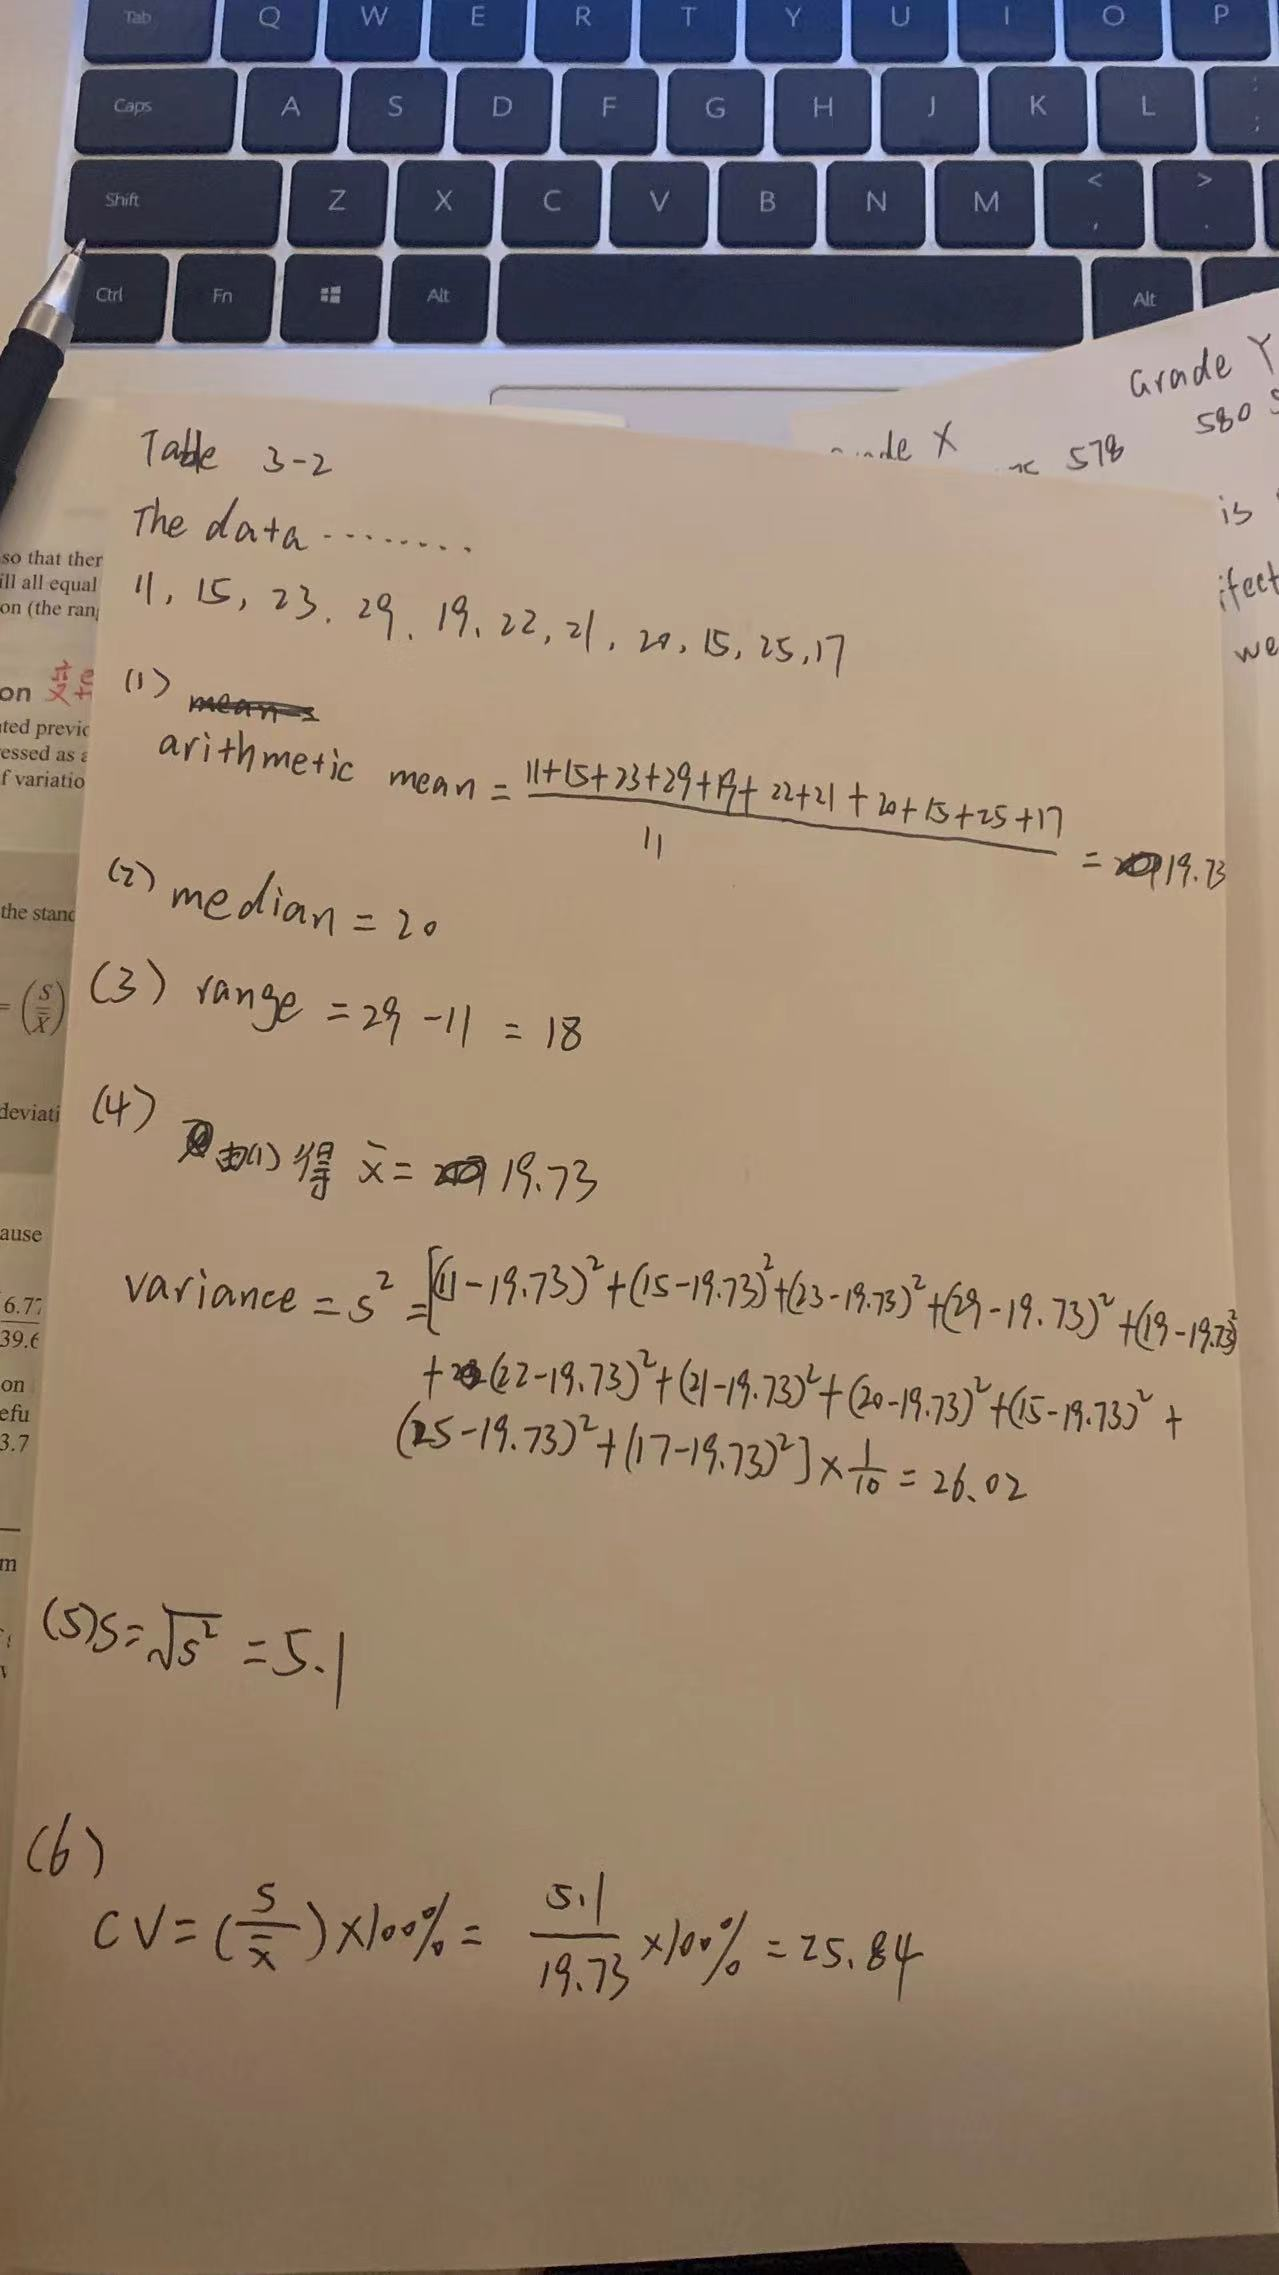 Tab Q W E R T Y U I O P
Caps A S D F G H J K L : ;
Shift Z X C V B N M < , > .
Ctrl Fn Alt Alt
Grade Y
580
X
578
is
we
so that ther
ill all equal
on (the rang
on
ted previc
essed as a
f variatio
the stand
= (S/X̄)
deviati
ause
6.77
39.6
on
efu
3.7
m
Table 3-2
The data ........
11, 15, 23. 29. 19. 22, 21, 20, 15, 25, 17
(1) means
arithmetic mean = (11+15+23+29+19+22+21+20+15+25+17)/11 = 19.73
(2) median = 20
(3) range = 29 - 11 = 18
(4)
由(1) 得 x̄ = 19.73
variance = s² = [(11-19.73)²+(15-19.73)²+(23-19.73)²+(29-19.73)²+(19-19.73)²
+(22-19.73)²+(21-19.73)²+(20-19.73)²+(15-19.73)²+
(25-19.73)²+(17-19.73)²]×1/10 = 26.02
(5) S=√s² = 5.1
(6)
CV = (s/x̄)×100% = 5.1/19.73 ×100% = 25.84